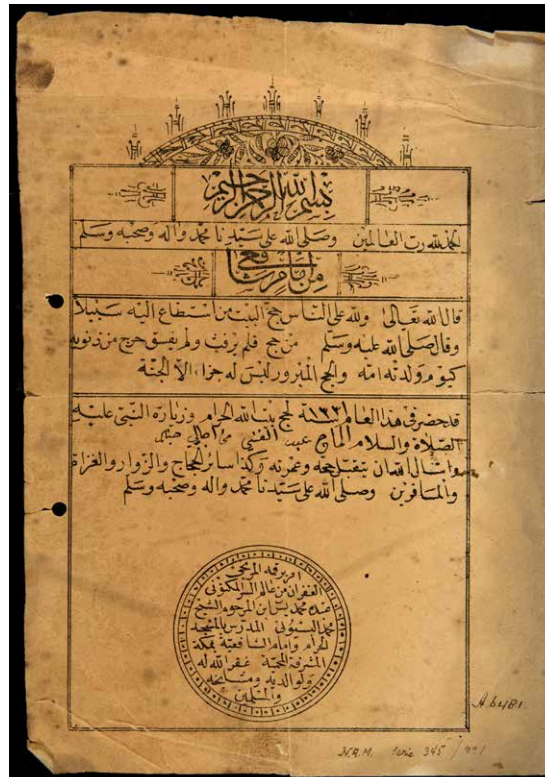 بسم الله الرحمن الرحيم
الحمد لله رب العالمين وصلى الله على سيدنا محمد وآله وصحبه وسلم
من امام شافعي
قال الله تعالى ولله على الناس حج البيت من استطاع اليه سبيلا
وقال صلى الله عليه وسلم من حج فلم يرفث ولم يفسق خرج من ذنوبه
كيوم ولدته امه والحج المبرور ليس له جزاء الا الجنة
قد حضر فى هذا العام سنة لحج بيت الله الحرام وزيارة النبى عليه
الصلاة والسلام الحاج عبد الغني من اهالي
واسأل الله ان يتقبل حجه وعمرته وكذا سائر الحجاج والزوار والغزاة
والمسافرين وصلى الله على سيدنا محمد واله وصحبه وسلم
المرتجى
الغفران من عالم السر المكنون
عبده محمد يس ابن المرحوم الشيخ
محمد البسيونى المدرس بالمسجد
الحرام وامام الشافعية بمكة
المشرفة المحمية غفر الله له
ولوالديه ومشايخه
والمسلمين
A.6481.
N.A.M. Serie 345 / no 1